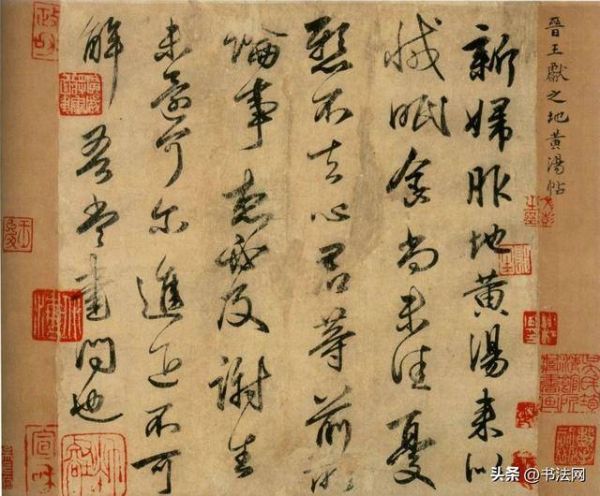 晉王獻之地黃湯帖
新婦服地黃湯來似
減眠食尚未佳憂
懸不去心君等前所
論事想必及謝生
未還可爾進退不可
解吾當書問也
宣和
头条 @书法网